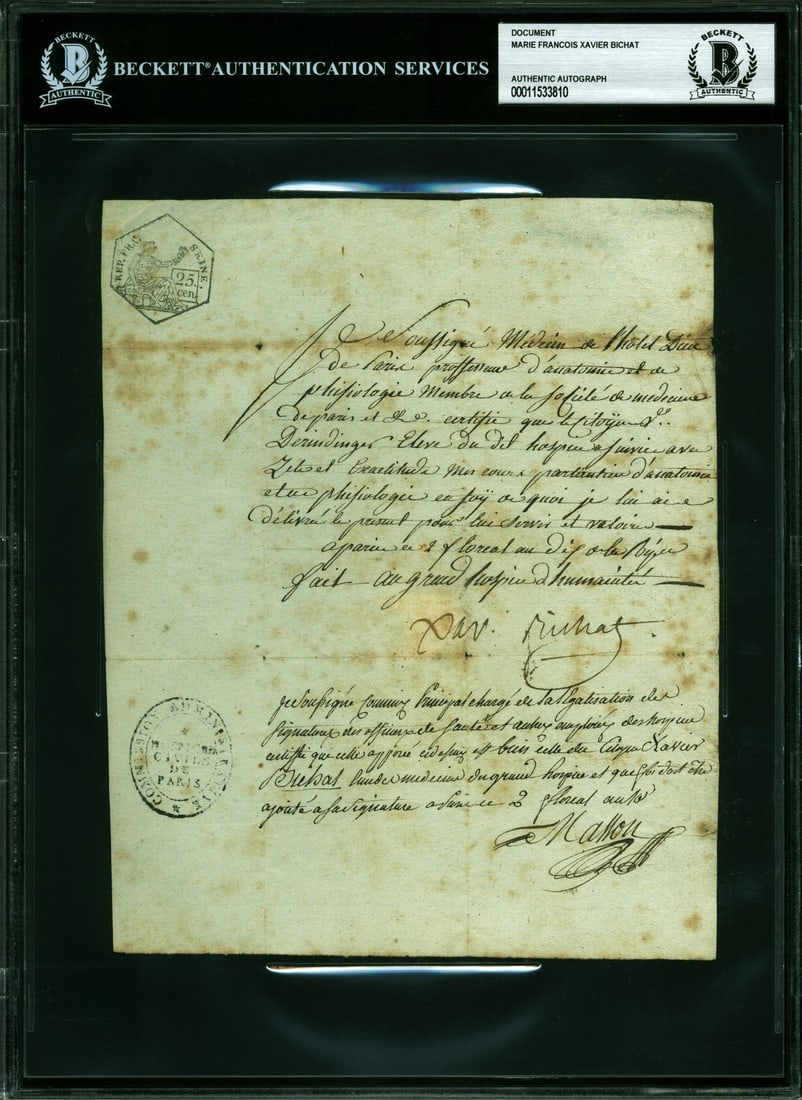 BECKETT
B
AUTHENTIC
BECKETT® AUTHENTICATION SERVICES
DOCUMENT
MARIE FRANCOIS XAVIER BICHAT
AUTHENTIC AUTOGRAPH
00011533810
BECKETT
B
AUTHENTIC
REP. FRA. SEINE.
25.
cen.
Je Soussigné Médecin de l'hotel Dieu
de Paris professeur d'anatomie et de
phisiologie Membre de la société de medecine
de paris et &c. certifie que le citoyen
Dermdinger Eleve du dit hospice a suivi avec
Zele et Exactitude mes cours particuliers d'anatomie
et de phisiologie en foy de quoi je lui ai
délivré le present pour lui servir et valoir
a paris ce 2 floreal an dix de la
fait au grand hospice d'humanité
Xav. Bichat
je Soussigné Commis Principal chargé de la légalisation des
signatures des officiers de santé et autres employés des hospices
certifie que celle apposée cidessus est bien celle du Citoyen Xavier
Bichat medecin du grand hospice et que foi doit être
ajoutée a sa signature a Paris ce 2 floreal an
Masson
COMMISSION ADMINISTRATIVE
CIVILS
DE
PARIS